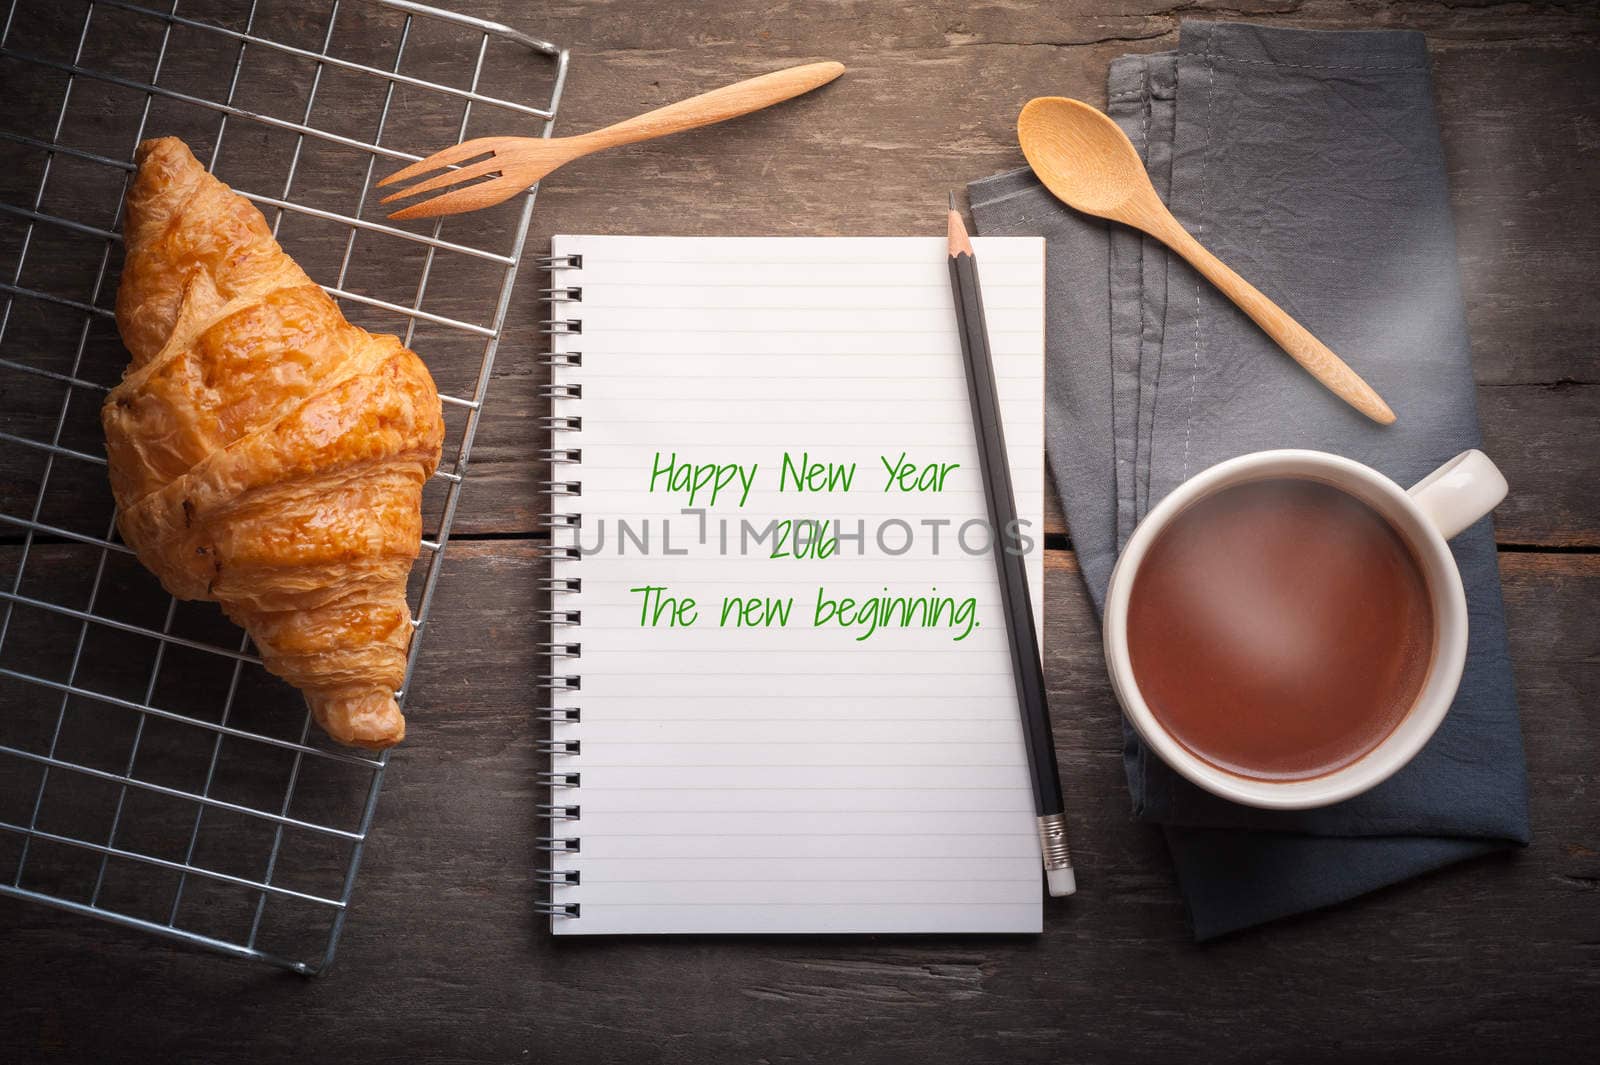 Happy New Year
2016
UNLIMPHOTOS
The new beginning.